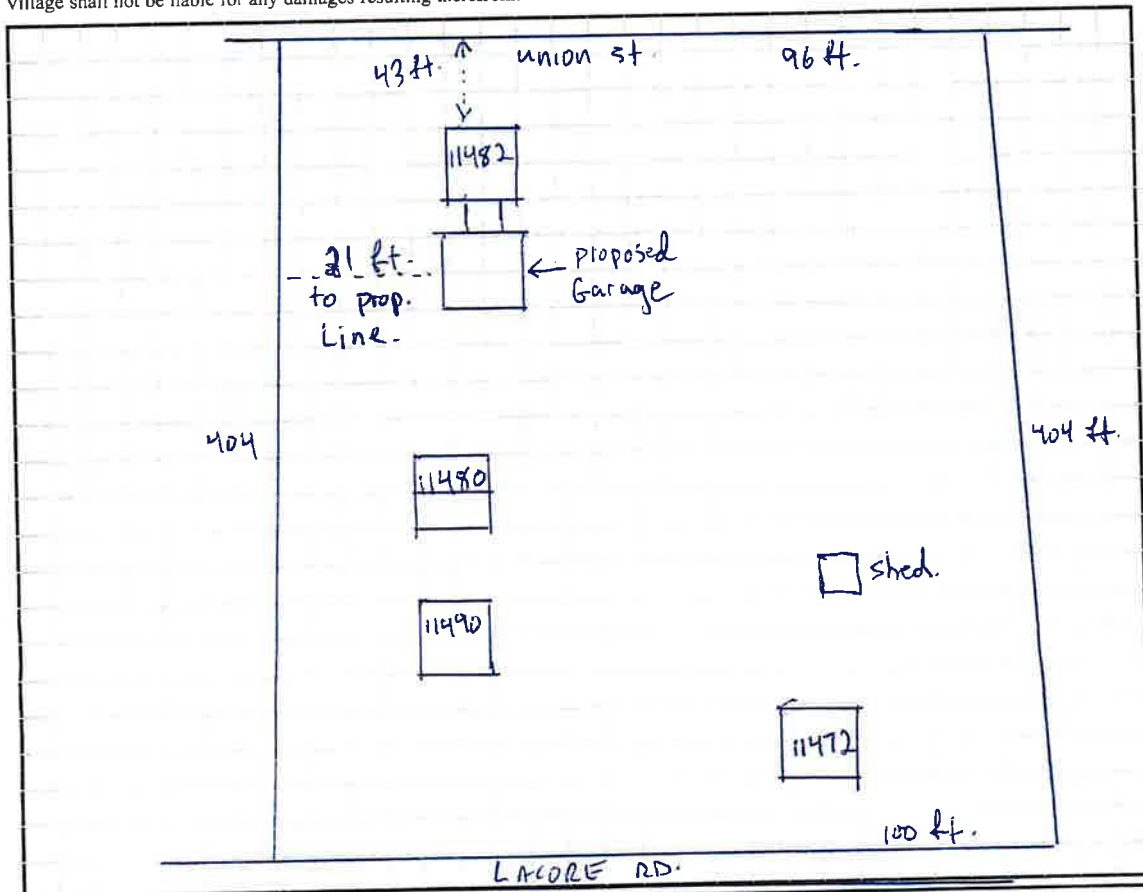 Village shall not be liable for any damages resulting therefrom.
43 ft. union st. 96 ft.
11482
21 ft. proposed
to prop. Garage
Line.
404 404 ft.
11480
shed.
11490
11472
100 ft.
LACORE RD.